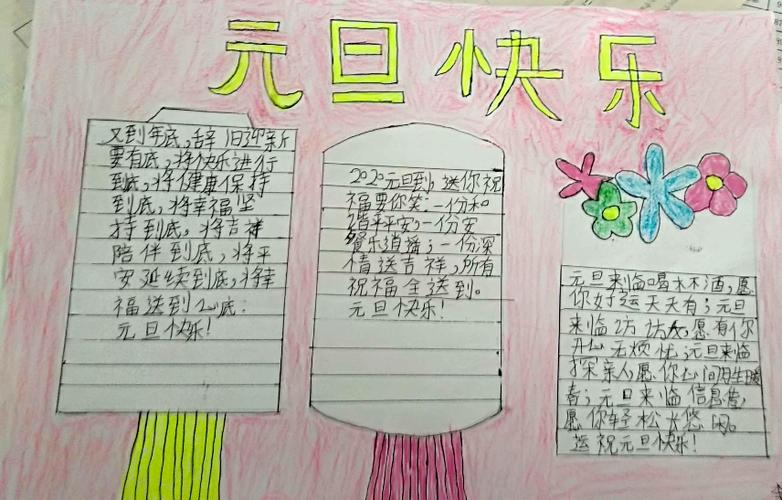 元旦快乐
又到年底,辞旧迎新
要有底,将快乐进行
到底,将健康保持
到底,将幸福坚
持到底,将吉祥
陪伴到底,将平
安延续到底,将幸
福送到心底:
元旦快乐!
2020元旦到,送你祝
福要你笑:一份和
谐平平安;一份安
餐乐逍播;一份深
情送吉祥,所有
祝福全送到。
元旦快乐!
元旦来临喝木不酒,愿
你好运天天有;元旦
来临访访友,愿有你
开心无烦忧;元旦来临
探亲人,愿你心间用生暖
春;元旦来临信息传,
愿你轻松长悠闲。
运祝元旦快乐!